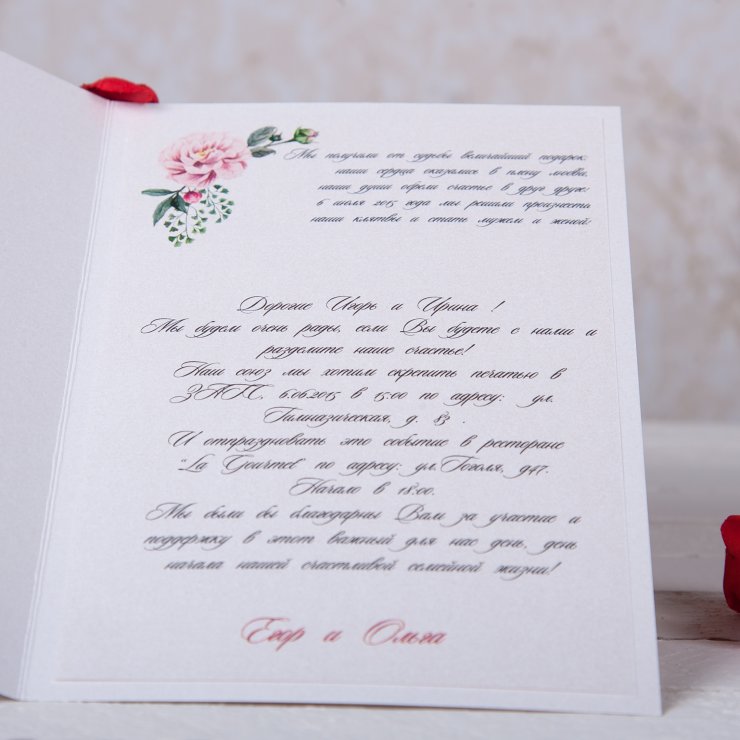 Мы получили от судьбы величайший подарок:
наши сердца оказались в плену любви,
наши души обрели счастье в друг друге:
6 июля 2015 года мы решили произнести
наши клятвы и стать мужем и женой.
Дорогие Игорь и Ирина !
Мы будем очень рады, если Вы будете с нами и
разделите наше счастье!
Наш союз мы хотим скрепить печатью в
ЗАГС, 6.06.2015 в 15:00 по адресу: ул.
Гимназическая, д. 83 .
И отпраздновать это событие в ресторане
"La Gourmet" по адресу: ул.Гоголя, д47.
Начало в 18:00.
Мы были бы благодарны Вам за участие и
поддержку в этот важный для нас день, день
начала нашей счастливой семейной жизни!
Егор и Ольга